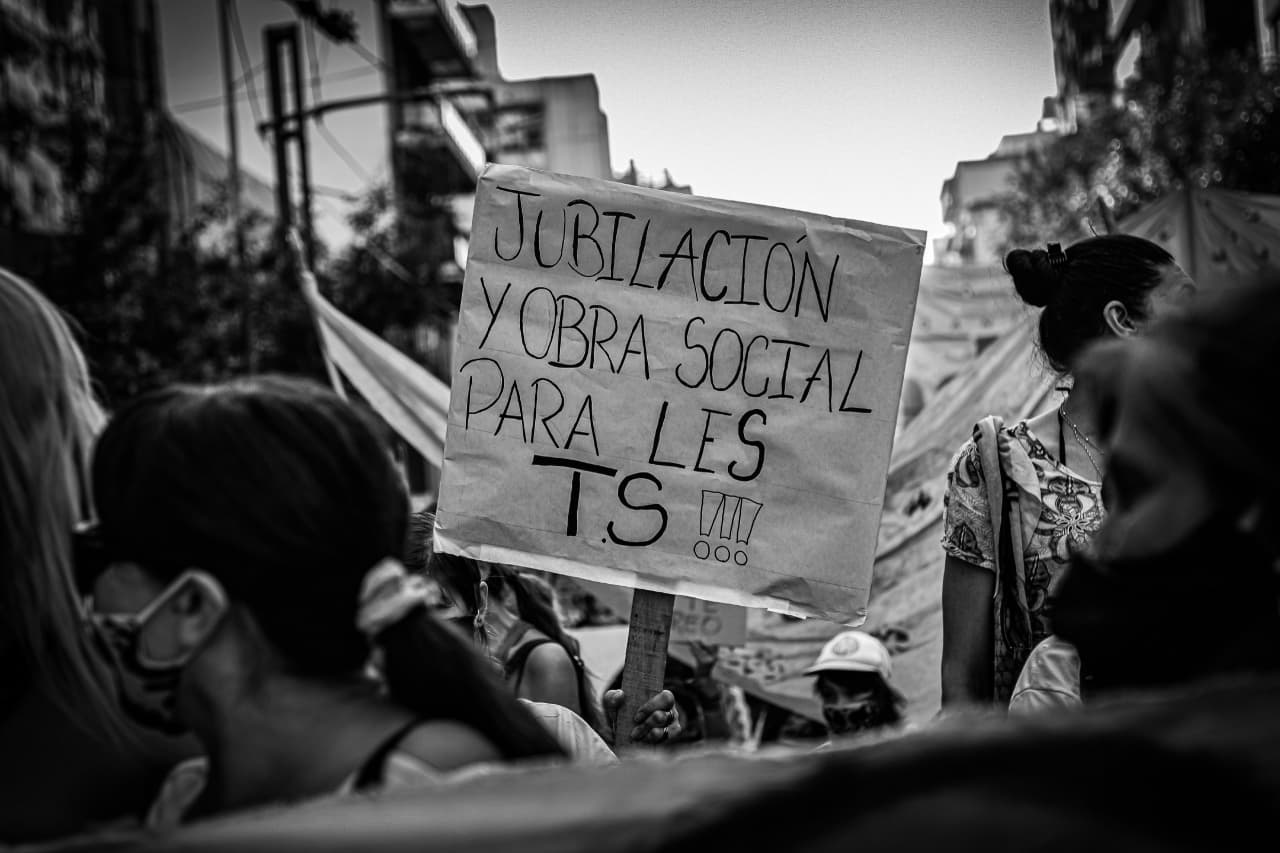 JUBILACIÓN
Y OBRA SOCIAL
PARA LES
T.S !!!